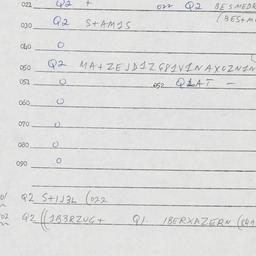 022 Q2 + 022 Q2 BESMEDR
030 Q2 S+AM1S (BES+M
040 0
050 Q2 MA+ZEJD1ZG81V1NAXOZN1N
051 0 052 Q1AT -
060 0
070 0
080 0
090 0
01 Q2 S+1J3L (022
02 Q2 ((1B3RZUG+ Q1. IBERXAZERN